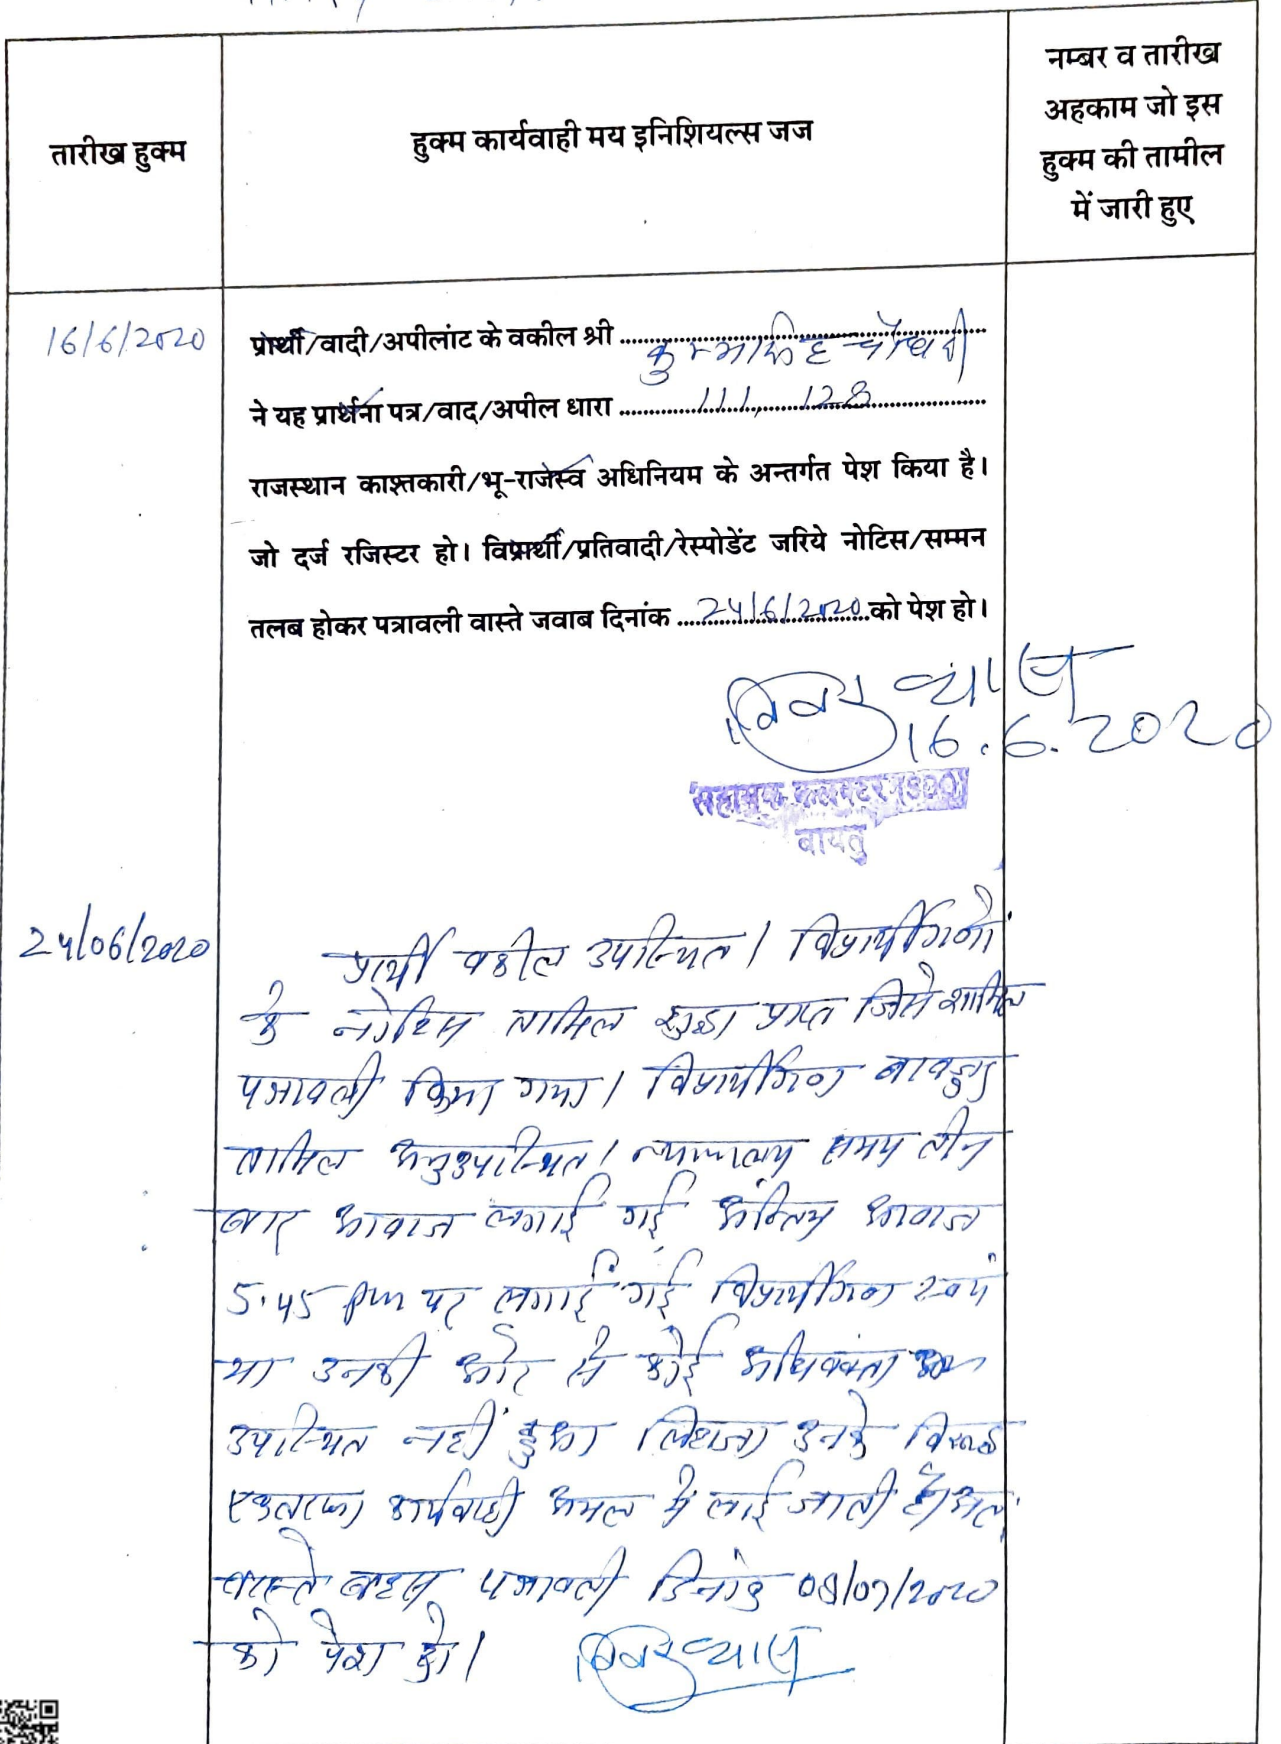 तारीख हुक्म
हुक्म कार्यवाही मय इनिशियल्स जज
नम्बर व तारीख
अहकाम जो इस
हुक्म की तामील
में जारी हुए
16/6/2020
प्रार्थी/वादी/अपीलांट के वकील श्री ..... चौधरी
ने यह प्रार्थना पत्र/वाद/अपील धारा ..... 111, 128 .....
राजस्थान काश्तकारी/भू-राजस्व अधिनियम के अन्तर्गत पेश किया है।
जो दर्ज रजिस्टर हो। विप्रार्थी/प्रतिवादी/रेस्पोडेंट जरिये नोटिस/सम्मन
तलब होकर पत्रावली वास्ते जवाब दिनांक ..24/6/2020..को पेश हो।
व्यास
16.6.2020
सहायक कलक्टर
बायतु
24/06/2020
प्रार्थी वकील उपस्थित। विप्रार्थीगणों
के नोटिस तामिल शुदा प्राप्त जिसे शामिल
पत्रावली किया गया। विप्रार्थीगण बावजूद
तामिल अनुउपस्थित। न्यायालय समय तीन
बार आवाज लगाई गई अंतिम आवाज
5.45 pm पर लगाई गई विप्रार्थीगण स्वयं
या उनकी ओर से कोई अधिवक्ता
उपस्थित नहीं हुआ लिहाजा उनके विरूद्ध
एकतरफा कार्यवाही अमल में लाई जाती है। अतः
वास्ते बहस पत्रावली दिनांक 08/07/2020
को पेश हो।
व्यास